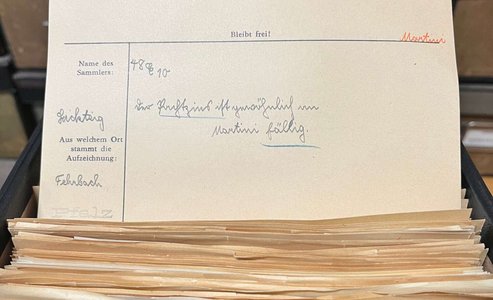 Bleibt frei!
Martini
Name des
Sammlers:
48 € 10
Der Pachtzins ist gewöhnlich um
Martini fällig.
Aus welchem Ort
stammt die
Aufzeichnung:
Fehrbach
Pfalz